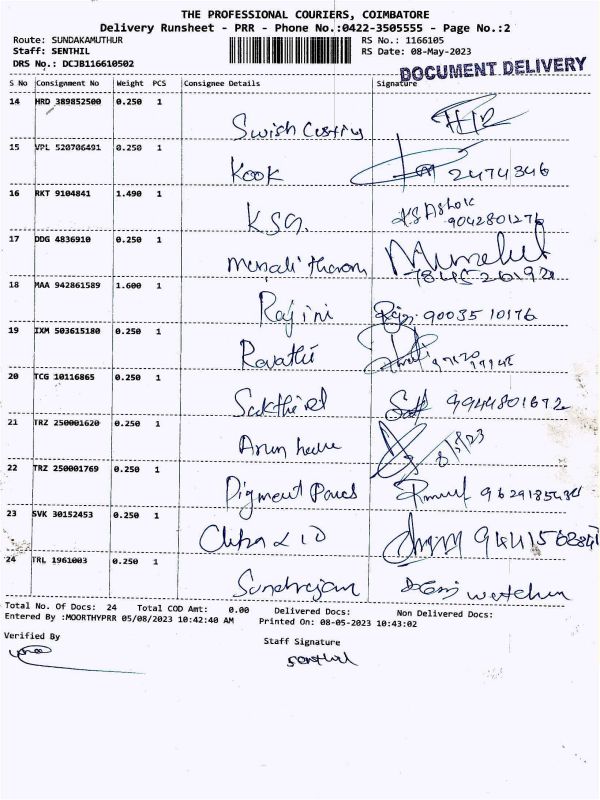 THE PROFESSIONAL COURIERS, COIMBATORE
Delivery Runsheet - PRR - Phone No.:0422-3505555 - Page No.:2
Route: SUNDAKAMUTHUR RS No.: 1166105
Staff: SENTHIL RS Date: 08-May-2023
DRS No.: DCJB116610502
DOCUMENT DELIVERY
S No Consignment No Weight PCS Consignee Details Signature
14 HRD 389852500 0.250 1
15 VPL 520706491 0.250 1
Kook 2474346
16 RKT 9104841 1.490 1
KSG. KS Ashok
9042801276
17 DDG 4836910 0.250 1
18 MAA 942861589 1.600 1
Rajini 90035 10176
19 IXM 503615180 0.250 1
Revathi
20 TCG 10116865 0.250 1
Sakthivel 9944801672
21 TRZ 250001620 0.250 1
Arun 8/5/23
22 TRZ 250001769 0.250 1
Pigment
23 SVK 30152453 0.250 1
24 TRL 1961003 0.250 1
Sundrajan
Total No. Of Docs: 24 Total COD Amt: 0.00 Delivered Docs: Non Delivered Docs:
Entered By :MOORTHYPRR 05/08/2023 10:42:40 AM Printed On: 08-05-2023 10:43:02
Verified By Staff Signature
Senthil